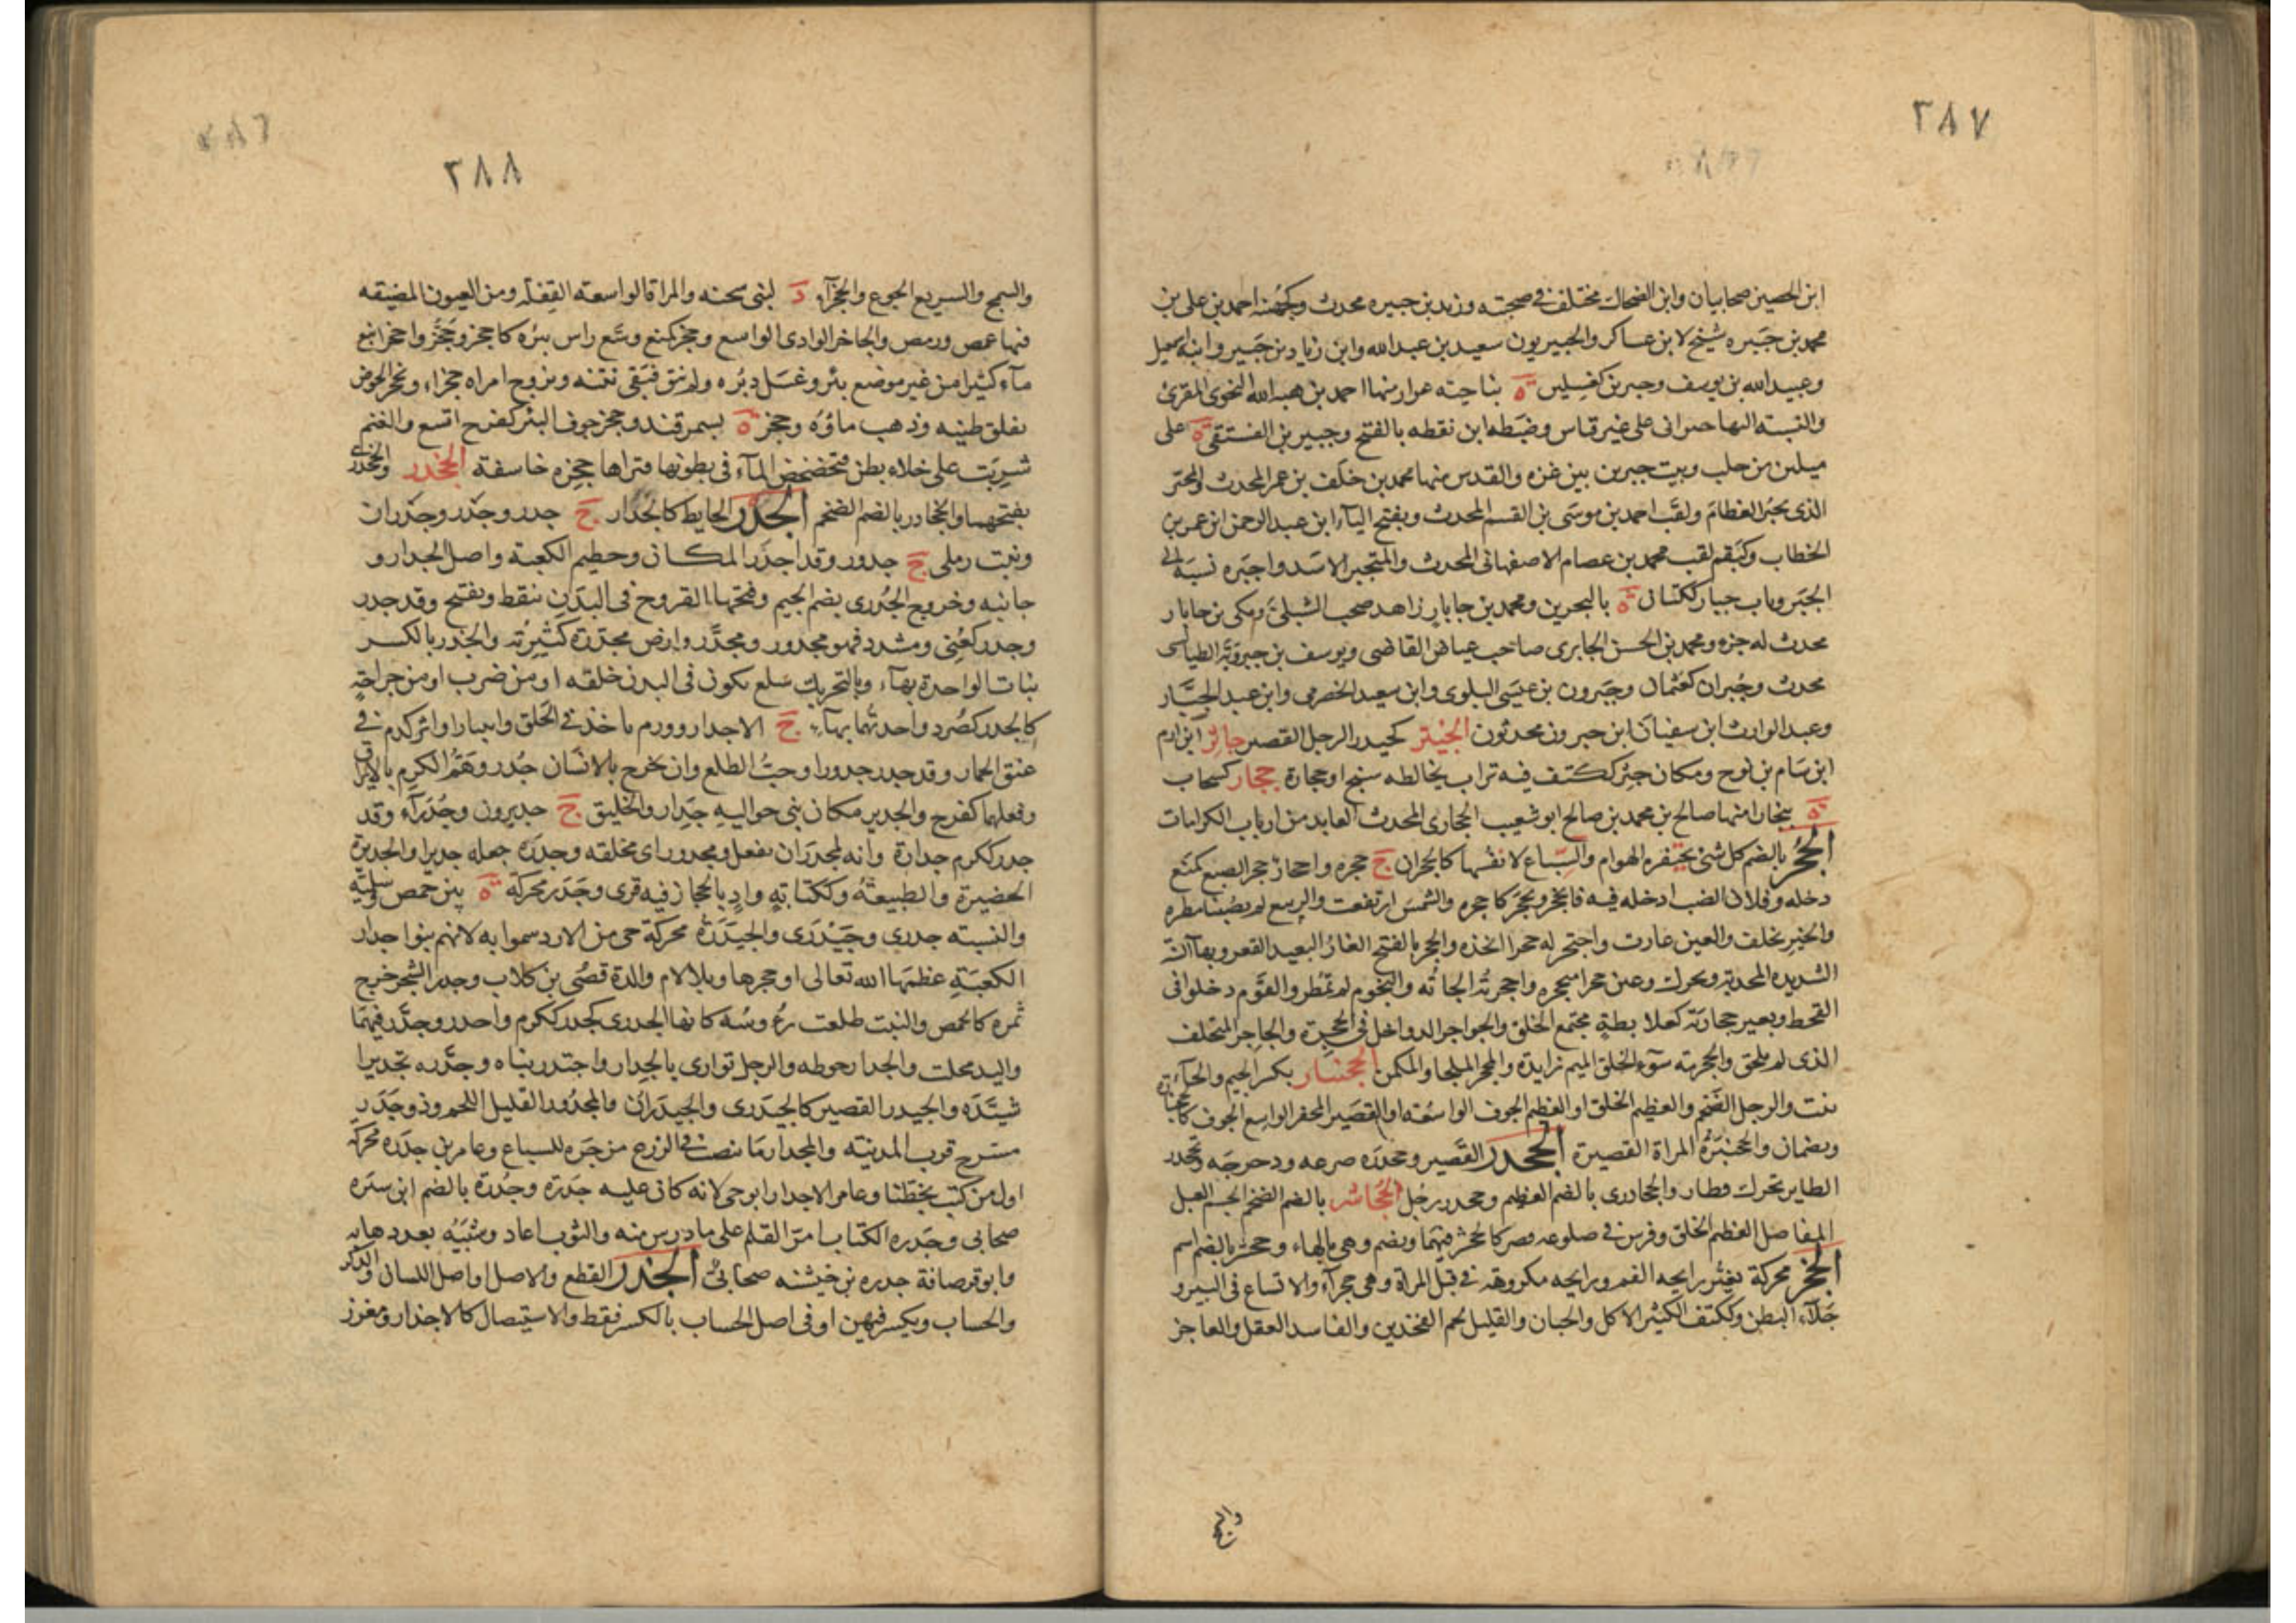 ٢٨٧
ابن الحصين صحابيان وابن الضحاك مختلف في صحبته وزيد بن جبيره محدث وكجهينه احمد بن علي بن
محمد بن جبيره شيخ لابن عساكر والجبيريون سعيد بن عبد الله وابن زياد بن جبير وابنه اسمعيل
وعبيد الله بن يوسف وجبرين كغسلين ة بناحيته عزاز منها احمد بن هبه الله النحوي المقرئ
والنسبته اليها جبراني على غير قياس وضبطه ابن نقطه بالفتح وجبرين الفستقي ة على
ميلين من حلب وبيت جبرين بين غزه والقدس منها محمد بن خلف بن عمر المحدث والمجبر
الذي يجبر العظام ولقب احمد بن موسى بن القسم المحدث وبفتح الباء ابن عبد الرحمن ابن عمر بن
الخطاب وكبقم لقب محمد بن عصام الاصفهاني المحدث والمتجبر الاسد واجبره نسبه الى
الجبر وباب جبار ككتان ة بالبحرين ومحمد بن جابار زاهد صحب الشبلي ومكي بن جابار
محدث له جزء ومحمد بن الحسن الجابري صاحب عياض القاضي ويوسف بن جبرويه الطيالسي
محدث وجبران كعثمان وجبرون بن عيسى البلوي وابن سعيد الحضرمي وابن عبد الجبار
وعبد الوارث ابن سفيان ابن جبرون محدثون الجيتر كحيدر الرجل القصير جاثر ابن ارم
ابن سام بن نوح ومكان جثر ككتف فيه تراب يخالطه سبخ او حجارة ججار كسحاب
ة ببخارا منها صالح بن محمد بن صالح ابو شعيب الججاري المحدث العابد من ارباب الكرامات
الجحر بالضم كل شئ يحتفره الهوام والسباع لانفسها كالجحران ج جحره واجحار جحر الضبع كمنع
دخله وفلان الضب ادخله فيه فانجحر وتجحر كاجحره والشمس ارتفعت والربيع لم يصبنا مطره
والخير تخلف والعين غارت واجتحر له جحرا اتخذه والجحر بالفتح الغار البعيد القعر وبهاء السنة
الشديده المجدبة ويحرك وعين جحرا متجحره واجحرته الجاته والنجوم لم تمطر والقوم دخلوا في
القحط وبعير جحارية كعلابطة مجتمع الخلق والجواحر الدواخل في الجحرة والجاحر المتخلف
الذي لم يلحق والجحرمه سوء الخلق الميم زايدة والمجحر الملجا والمكمن الجحنبار بكسر الجيم والحاء
نبت والرجل الضخم والعظيم الخلق او العظيم الجوف الواسعته او القصير المجفر الواسع الجوف كالجحنبارة
ويضمان والجحنبرة المراة القصيرة الجحدر القصير وجحدره صرعه ودحرجه وتجحدر
الطاير تحرك فطار والجحادري بالضم العظيم وجحدر رجل الجحاشر بالضم الضخم الجسم العبل
المفاصل العظيم الخلق وفرس في ضلوعه قصر كالجحشر فيهما ويضم وهي بالهاء وجحشر بالضم اسم
الجخر محركة تغير رايحه الفم ورايحه مكروهته في قبل المراة وهي جخراء والاتساع في البير و
خلاء البطن وككتف الكثير الاكل والجبان والقليل لحم الفخذين والفاسد العقل والعاجز
٢٨٨
والسمج والسريع الجوع والجخراء د لبني سحنه والمراة الواسعته القيفله ومن العيون الضيقه
فيها غمص ورمص والجاخر الوادي الواسع وجخر كمنع وسع راس بئره كاجخر وجخر واجخر انبع
ماء كثيرا من غير موضع بئر وغسل دبره ولم ينق فبقي نتنه وتزوج امراه جخراء وتجخر الحوض
تفلق طينه وذهب ماؤه وجخر ة بسمرقند وجخر جوف البئر كفرح اتسع والغنم
شربت على خلاء بطن فتخضخض الماء في بطونها فتراها جخره خاسفة الجخدر والجخدري
بفتحهما والجخادر بالضم الضخم الجدر الحايط كالجدار ج جدر وجدر وجدران
ونبت رملي ج جدور وقد اجدر المكان وحطيم الكعبته واصل الجدار و
جانبه وخروج الجدري بضم الجيم وفتحها القروح في البدن تنقط وتفتح وقد جدر
وجدر كعني ومشدد فهو مجدور ومجدر وارض مجدرة كثيرته والجدر بالكسر
نبات الواحدة بهاء وبالتحريك سلع تكون في البدن خلقه او من ضرب او من جراحة
كالجدر كصرد واحدتهما بهاء ج الاجدار وورم ياخذ في الحلق وانتبارا واثر كدم في
عنق الحمار وقد جدر جدورا وحب الطلع وان يخرج بالانسان جدر وهم الكرم بالايراق
وفعلهما كفرح والجدير مكان بني حواليه جدار والخليق ج جديرون وجدراء وقد
جدر ككرم جدارة وانه لمجدر ان يفعل ومجدور اي مخلقه وجدره جعله جديرا والجديرة
الحضيرة والطبيعة وككتابة واد بالحجاز فيه قرى وجدر محركة ة بين حمص وسلمية
والنسبته جدري وجيدري والجيدرة محركة حي من الازد سموا به لانهم بنوا جدار
الكعبة عظمها الله تعالى او حجرها وبلا لام والدة قصي بن كلاب وجدر الشجر خرج
ثمره كالحمص والنبت طلعت رءوسه كانها الجدري كجدر ككرم واجدر وجدر فيهما
واليد مجلت والجدار حوطه والرجل توارى بالجدار واجتدر بناه وجدره تجديرا
شيده والجيدر القصير كالجيدري والجيدران والمجدور القليل اللحم وذو جدر
مسرح قرب المدينته والمجدار ما ينصب في الزرع مزجره للسباع وعامر بن جدره محركة
اول من كتب بخطنا وعامر الاجدار ابو حي لانه كان عليه جدرة وجدرة بالضم ابن سبره
صحابي وجدره الكتاب امر القلم على ما درس منه والثوب اعاد وشيه بعد ذهابه
وابو قرصافة جدره بن خيشنه صحابي الجذر القطع والاصل او اصل اللسان والذكر
والحساب ويكسر فيهن او في اصل الحساب بالكسر فقط والاستيصال كالاجذار ومغرز